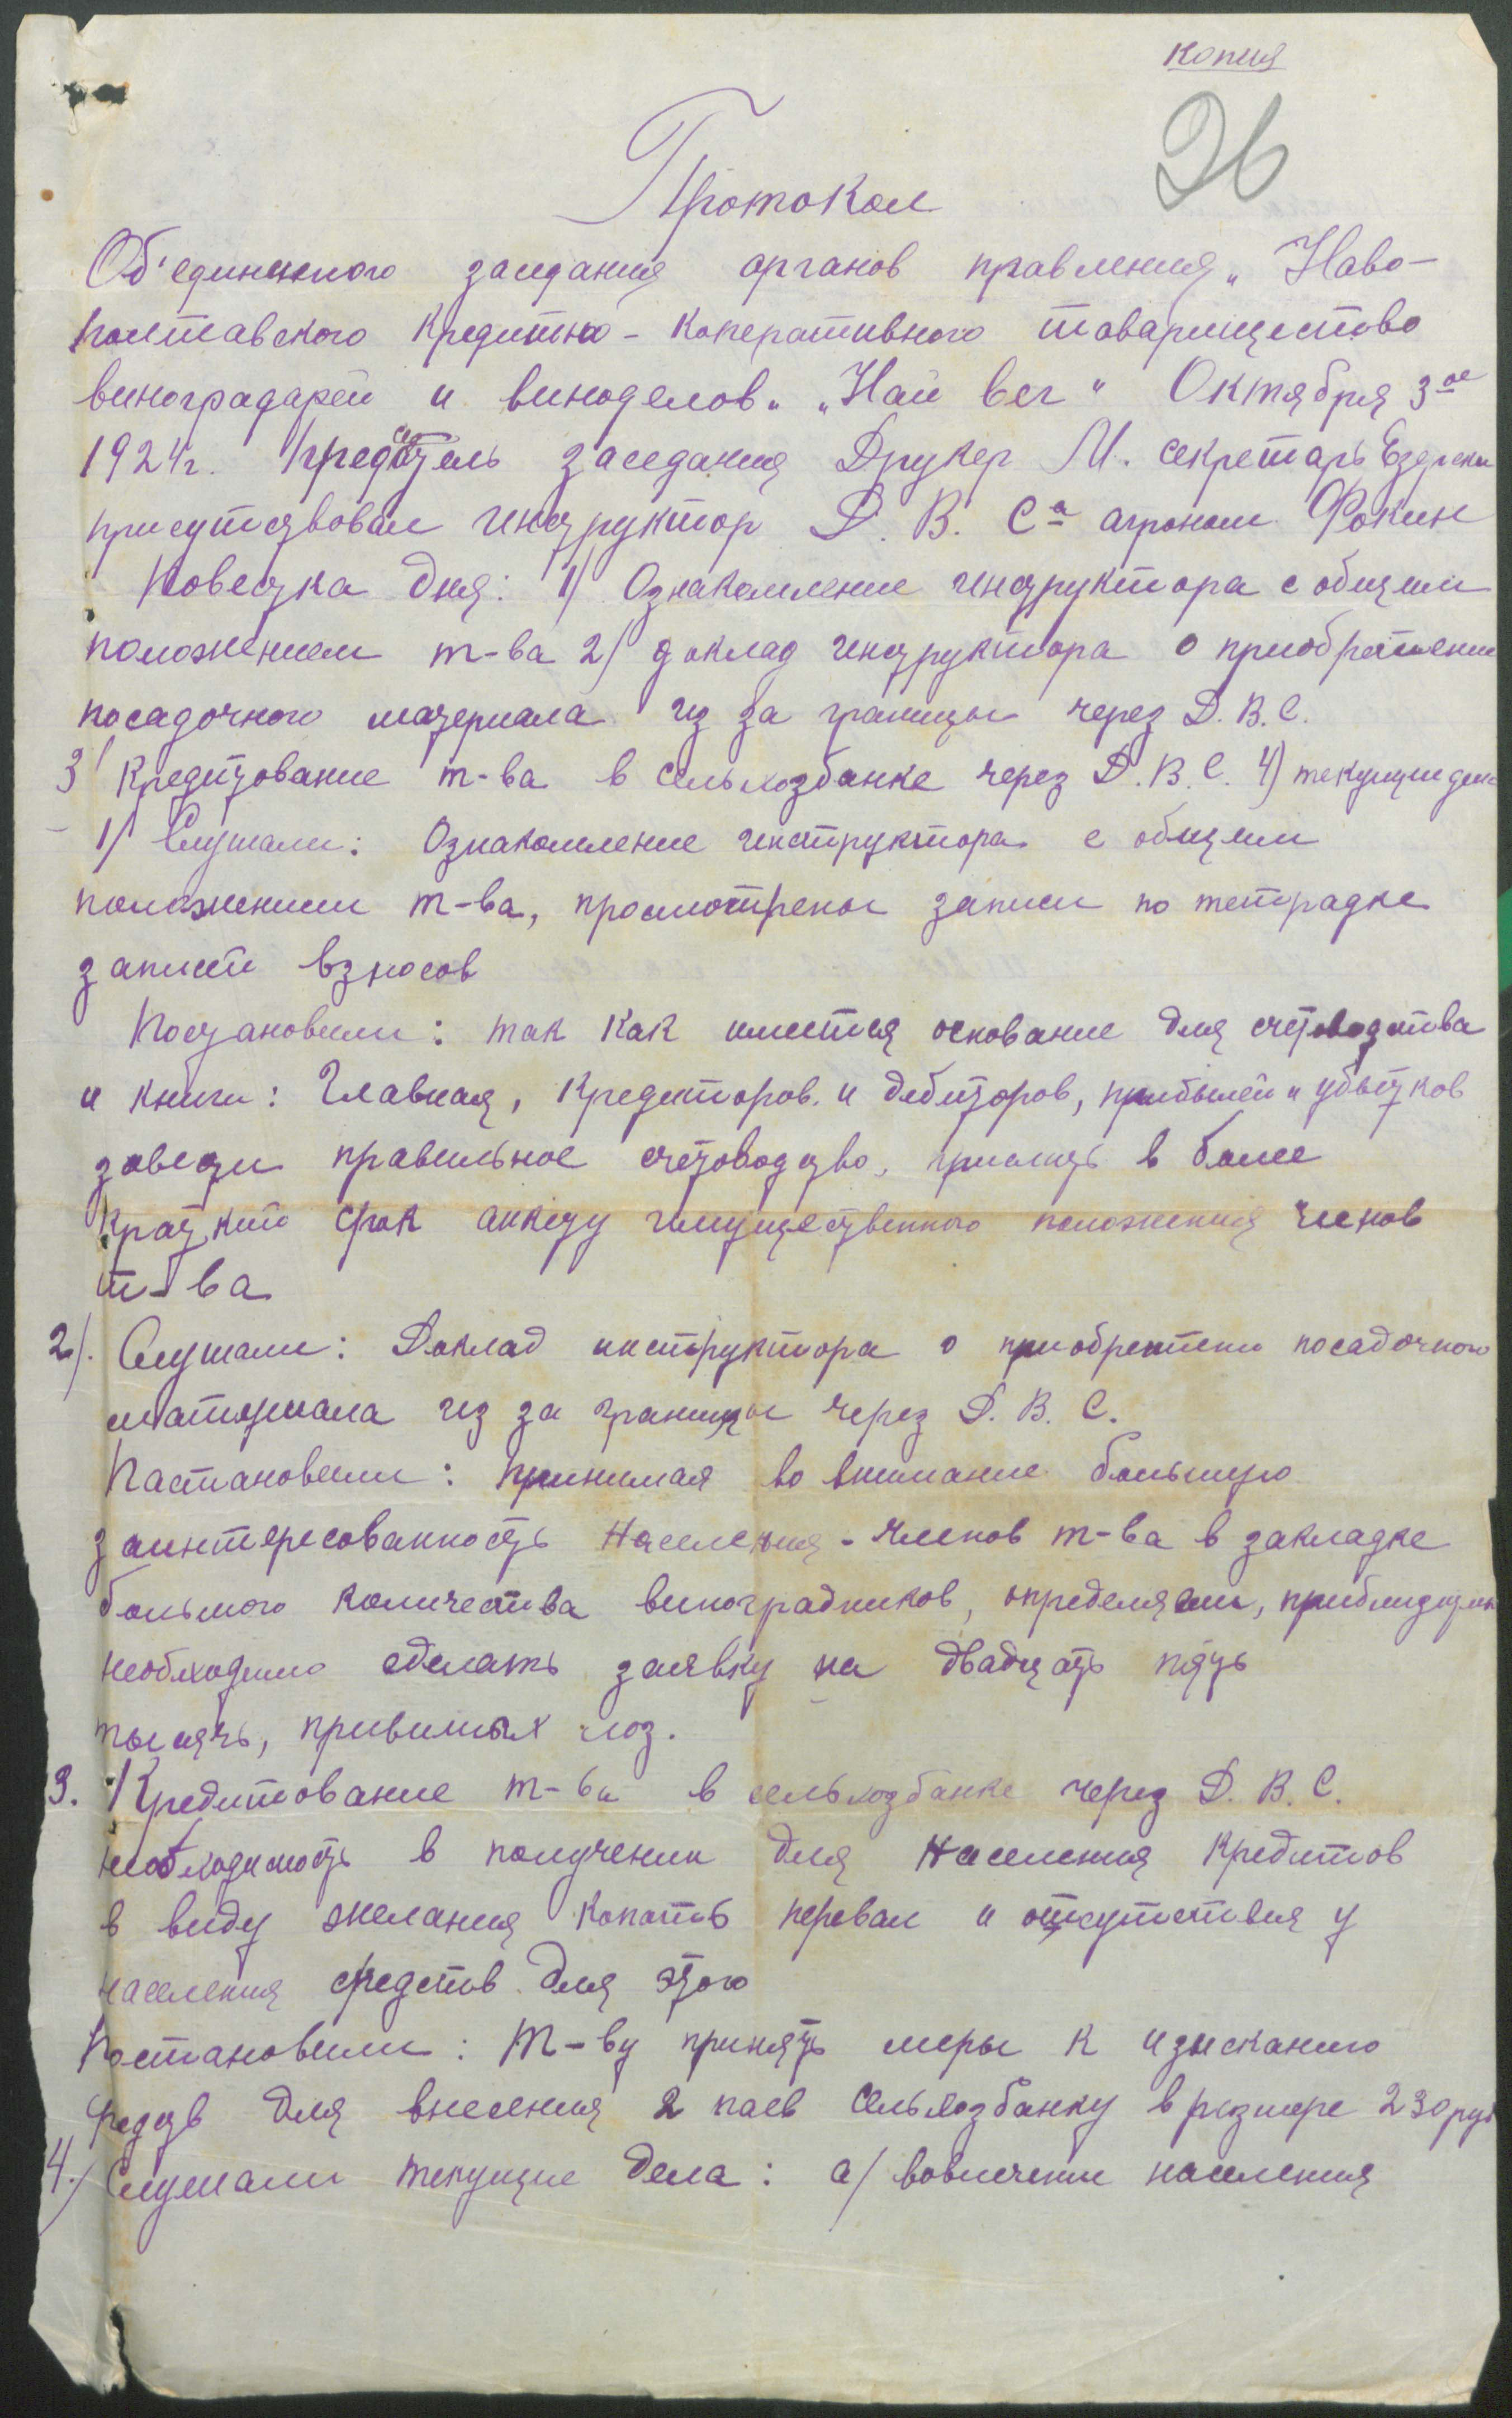 копия
26
Протокол
Об'единенного заседания органов правления „Ново-
полтавского Кредитно-коперативного товарищество
виноградарей и виноделов„ „Най вег“ Октября 3ое
1924г. Предсдатель заседания Друкер М. секретарь Езерски
присутствовал инструктор Д. В. Са агроном Фокин
Повестка дня: 1) Ознакомление инструктора с общим
положением т-ва 2) доклад инструктора о приобретении
посадочного материала из за границы через Д.В.С.
3) Кредитование т-ва в сельхозбанке через Д.В.С. 4) текущие дела
1) Слушали: Ознакомление инструктора с общим
положением т-ва, просмотрены записи по тетрадке
записи взносов
Постановили: так как имеется основание для счетоводства
и книги: Главная, Кредиторов и дебиторов, прибылей и убытков
завести правильное счетоводство, прислать в более
краткий срок анкету имущественного положения членов
т-ва
2). Слушали: Доклад инструктора о приобретении посадочного
материала из за границы через Д. В. С.
Постановили: принимая во внимание большую
заинтересованность Населения - членов т-ва в закладке
большого количества виноградников, определяем, приблизительно
необходимо сделать заявку на двадцать пять
тысячь, привитых лоз.
3. Кредитование т-ва в сельхозбанке через Д. В. С.
необходимость в получении для Населения Кредитов
в виду желания копать перевал и отсутствия у
населения средств для этого
Постановили: Т-ву принять меры к изысканию
средств для внесения 2 паев Сельхозбанку в размере 230 руб
4.) Слушали текущие дела: а) вовлечение населения